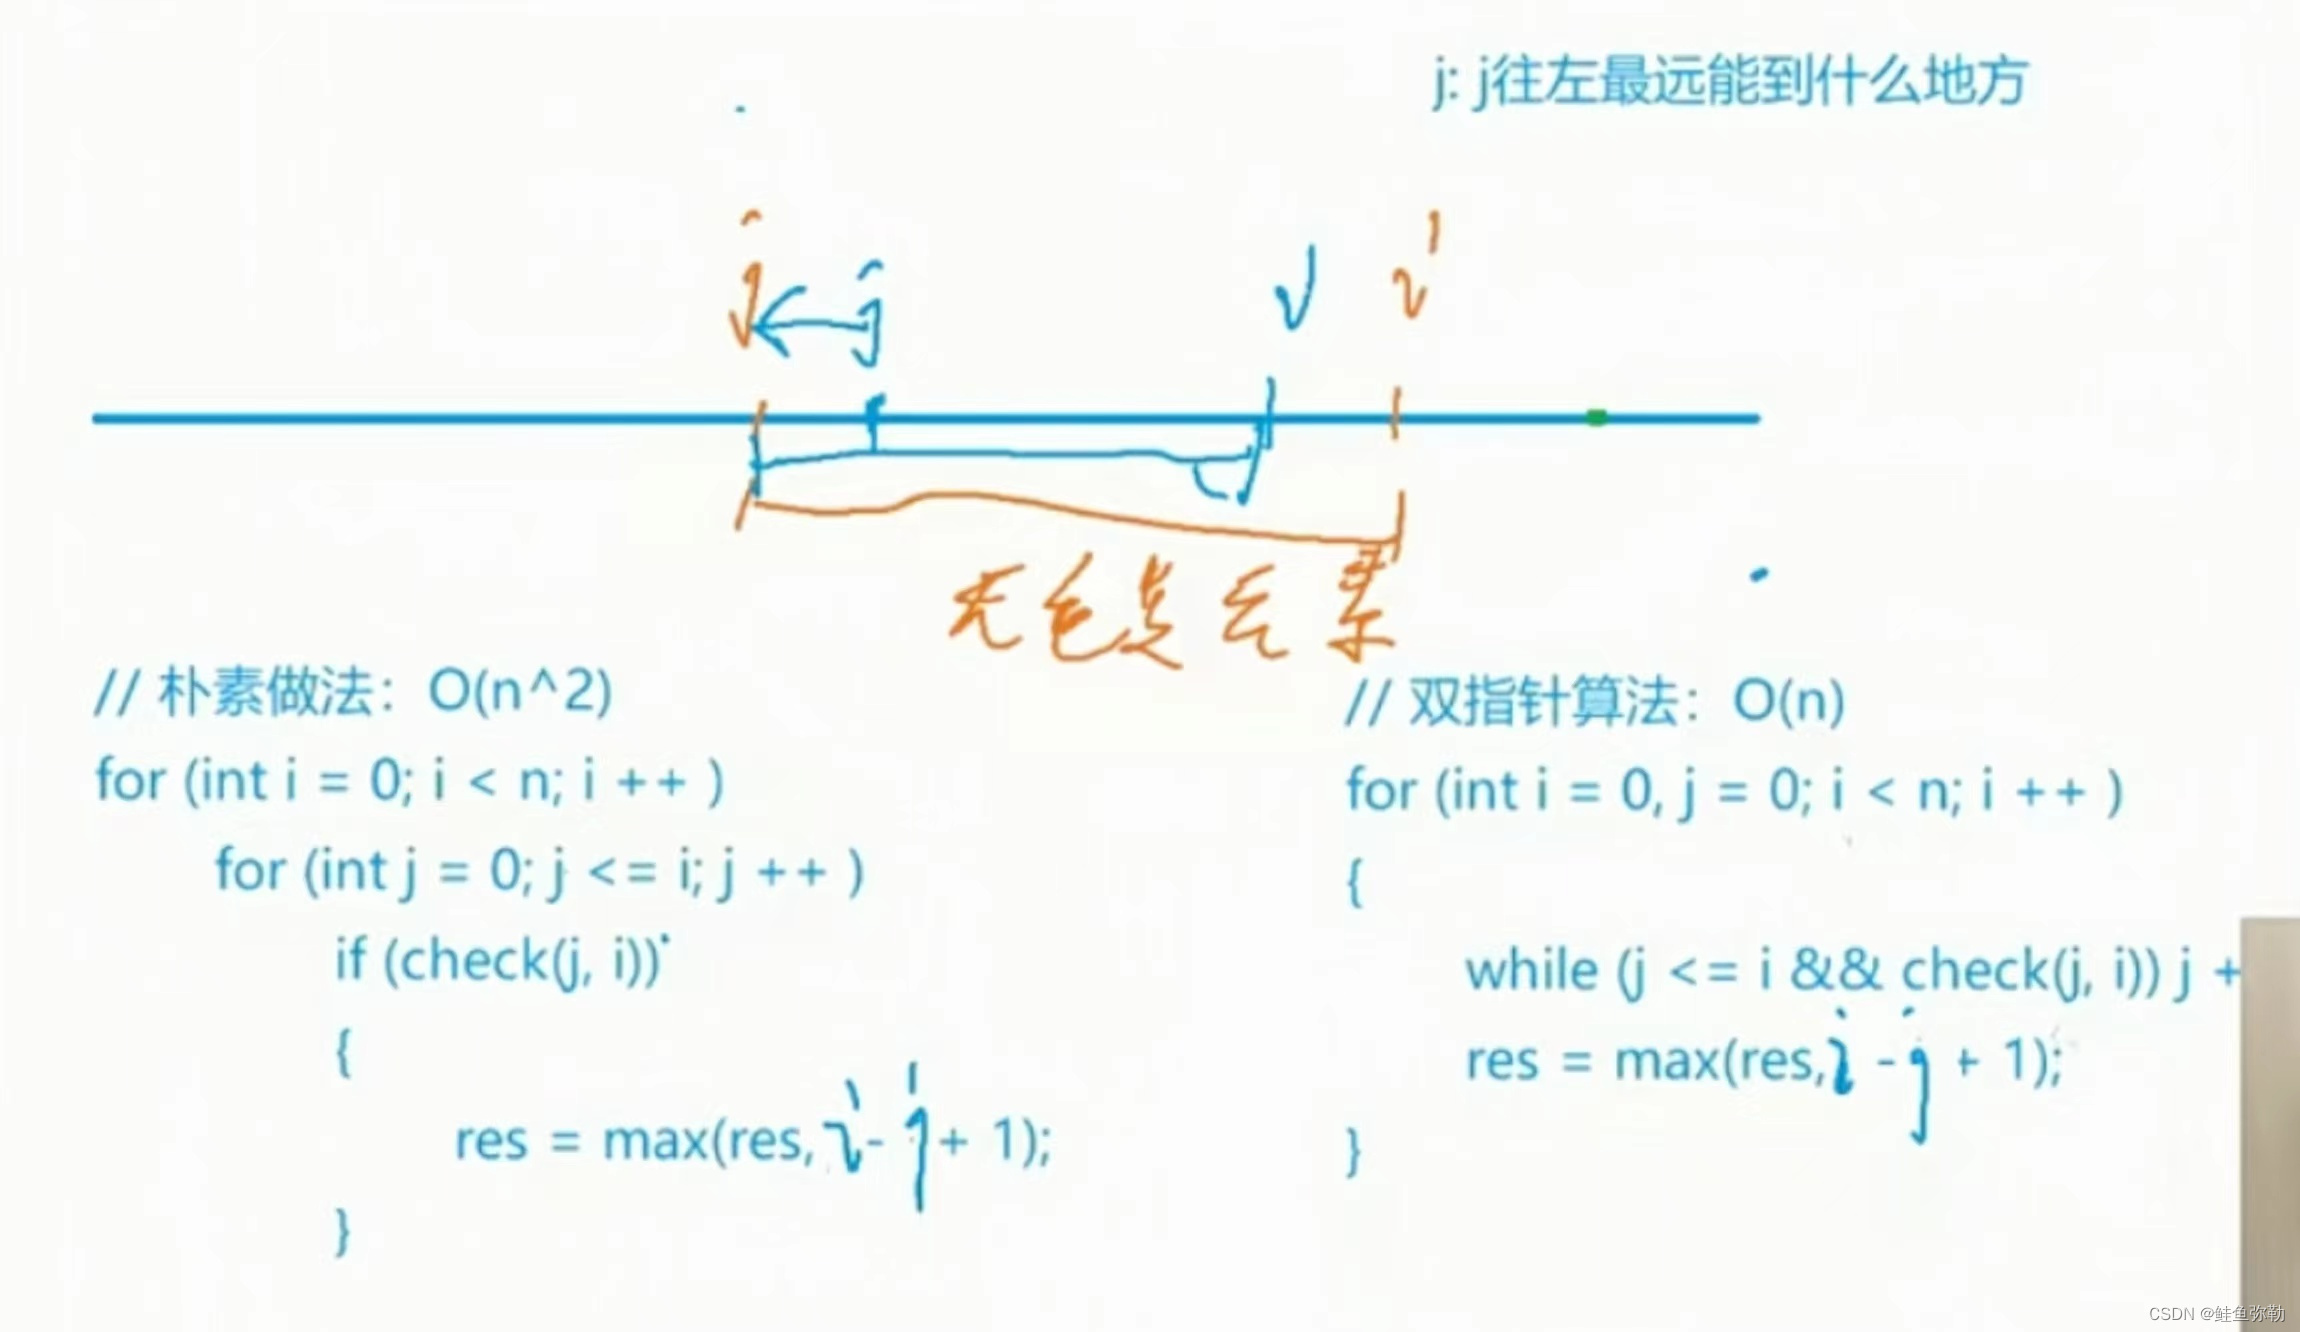 j: j往左最远能到什么地方
j j i i'
无重复元素
// 朴素做法：O(n^2)
for (int i = 0; i < n; i ++ )
for (int j = 0; j <= i; j ++ )
if (check(j, i))
{
res = max(res, i - j + 1);
}
// 双指针算法：O(n)
for (int i = 0, j = 0; i < n; i ++ )
{
while (j <= i && check(j, i)) j +
res = max(res, i - j + 1);
}
CSDN @鲑鱼弥勒